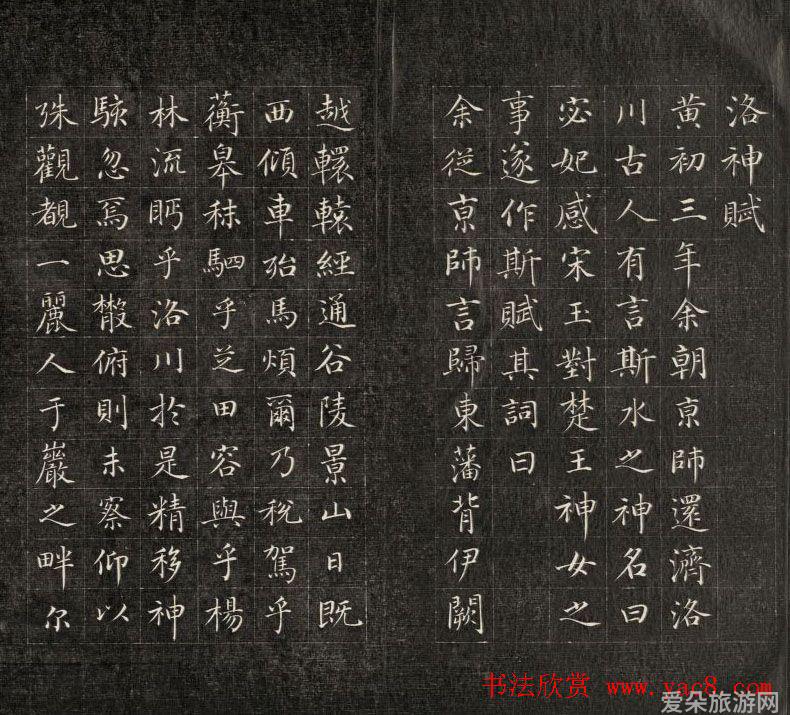 洛神賦
黃初三年余朝亰師還濟洛
川古人有言斯水之神名曰
宓妃感宋玉對楚王神女之
事遂作斯賦其詞曰
余從亰師言歸東藩背伊闕
越轘轅經通谷陵景山日既
西傾車殆馬煩爾乃稅駕乎
蘅皋秣駟乎芝田容與乎楊
林流眄乎洛川於是精移神
駭忽焉思散俯則未察仰以
殊觀覩一麗人于巖之畔尔
书法欣赏 www.yac8.com
爱朵旅游网